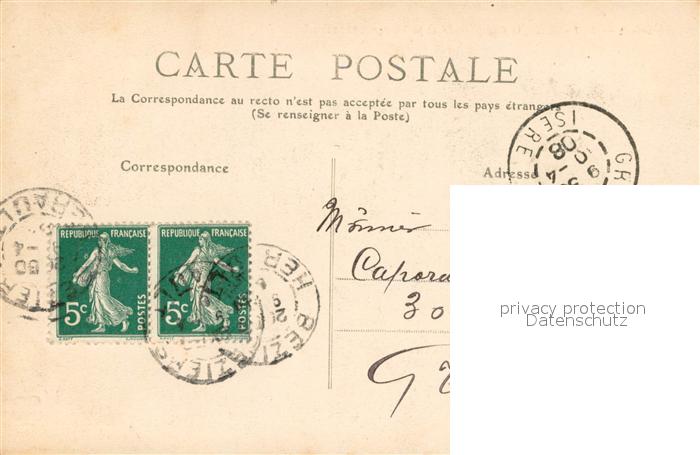 CARTE POSTALE
La Correspondance au recto n'est pas acceptée par tous les pays étrangers
(Se renseigner à la Poste)
Correspondance
Adresse
ISERE
RÉPUBLIQUE FRANÇAISE
5c
POSTES
RÉPUBLIQUE FRANÇAISE
5c
POSTES
BEZIERS
HER
Mônier
Capora
30
privacy protection
Datenschutz